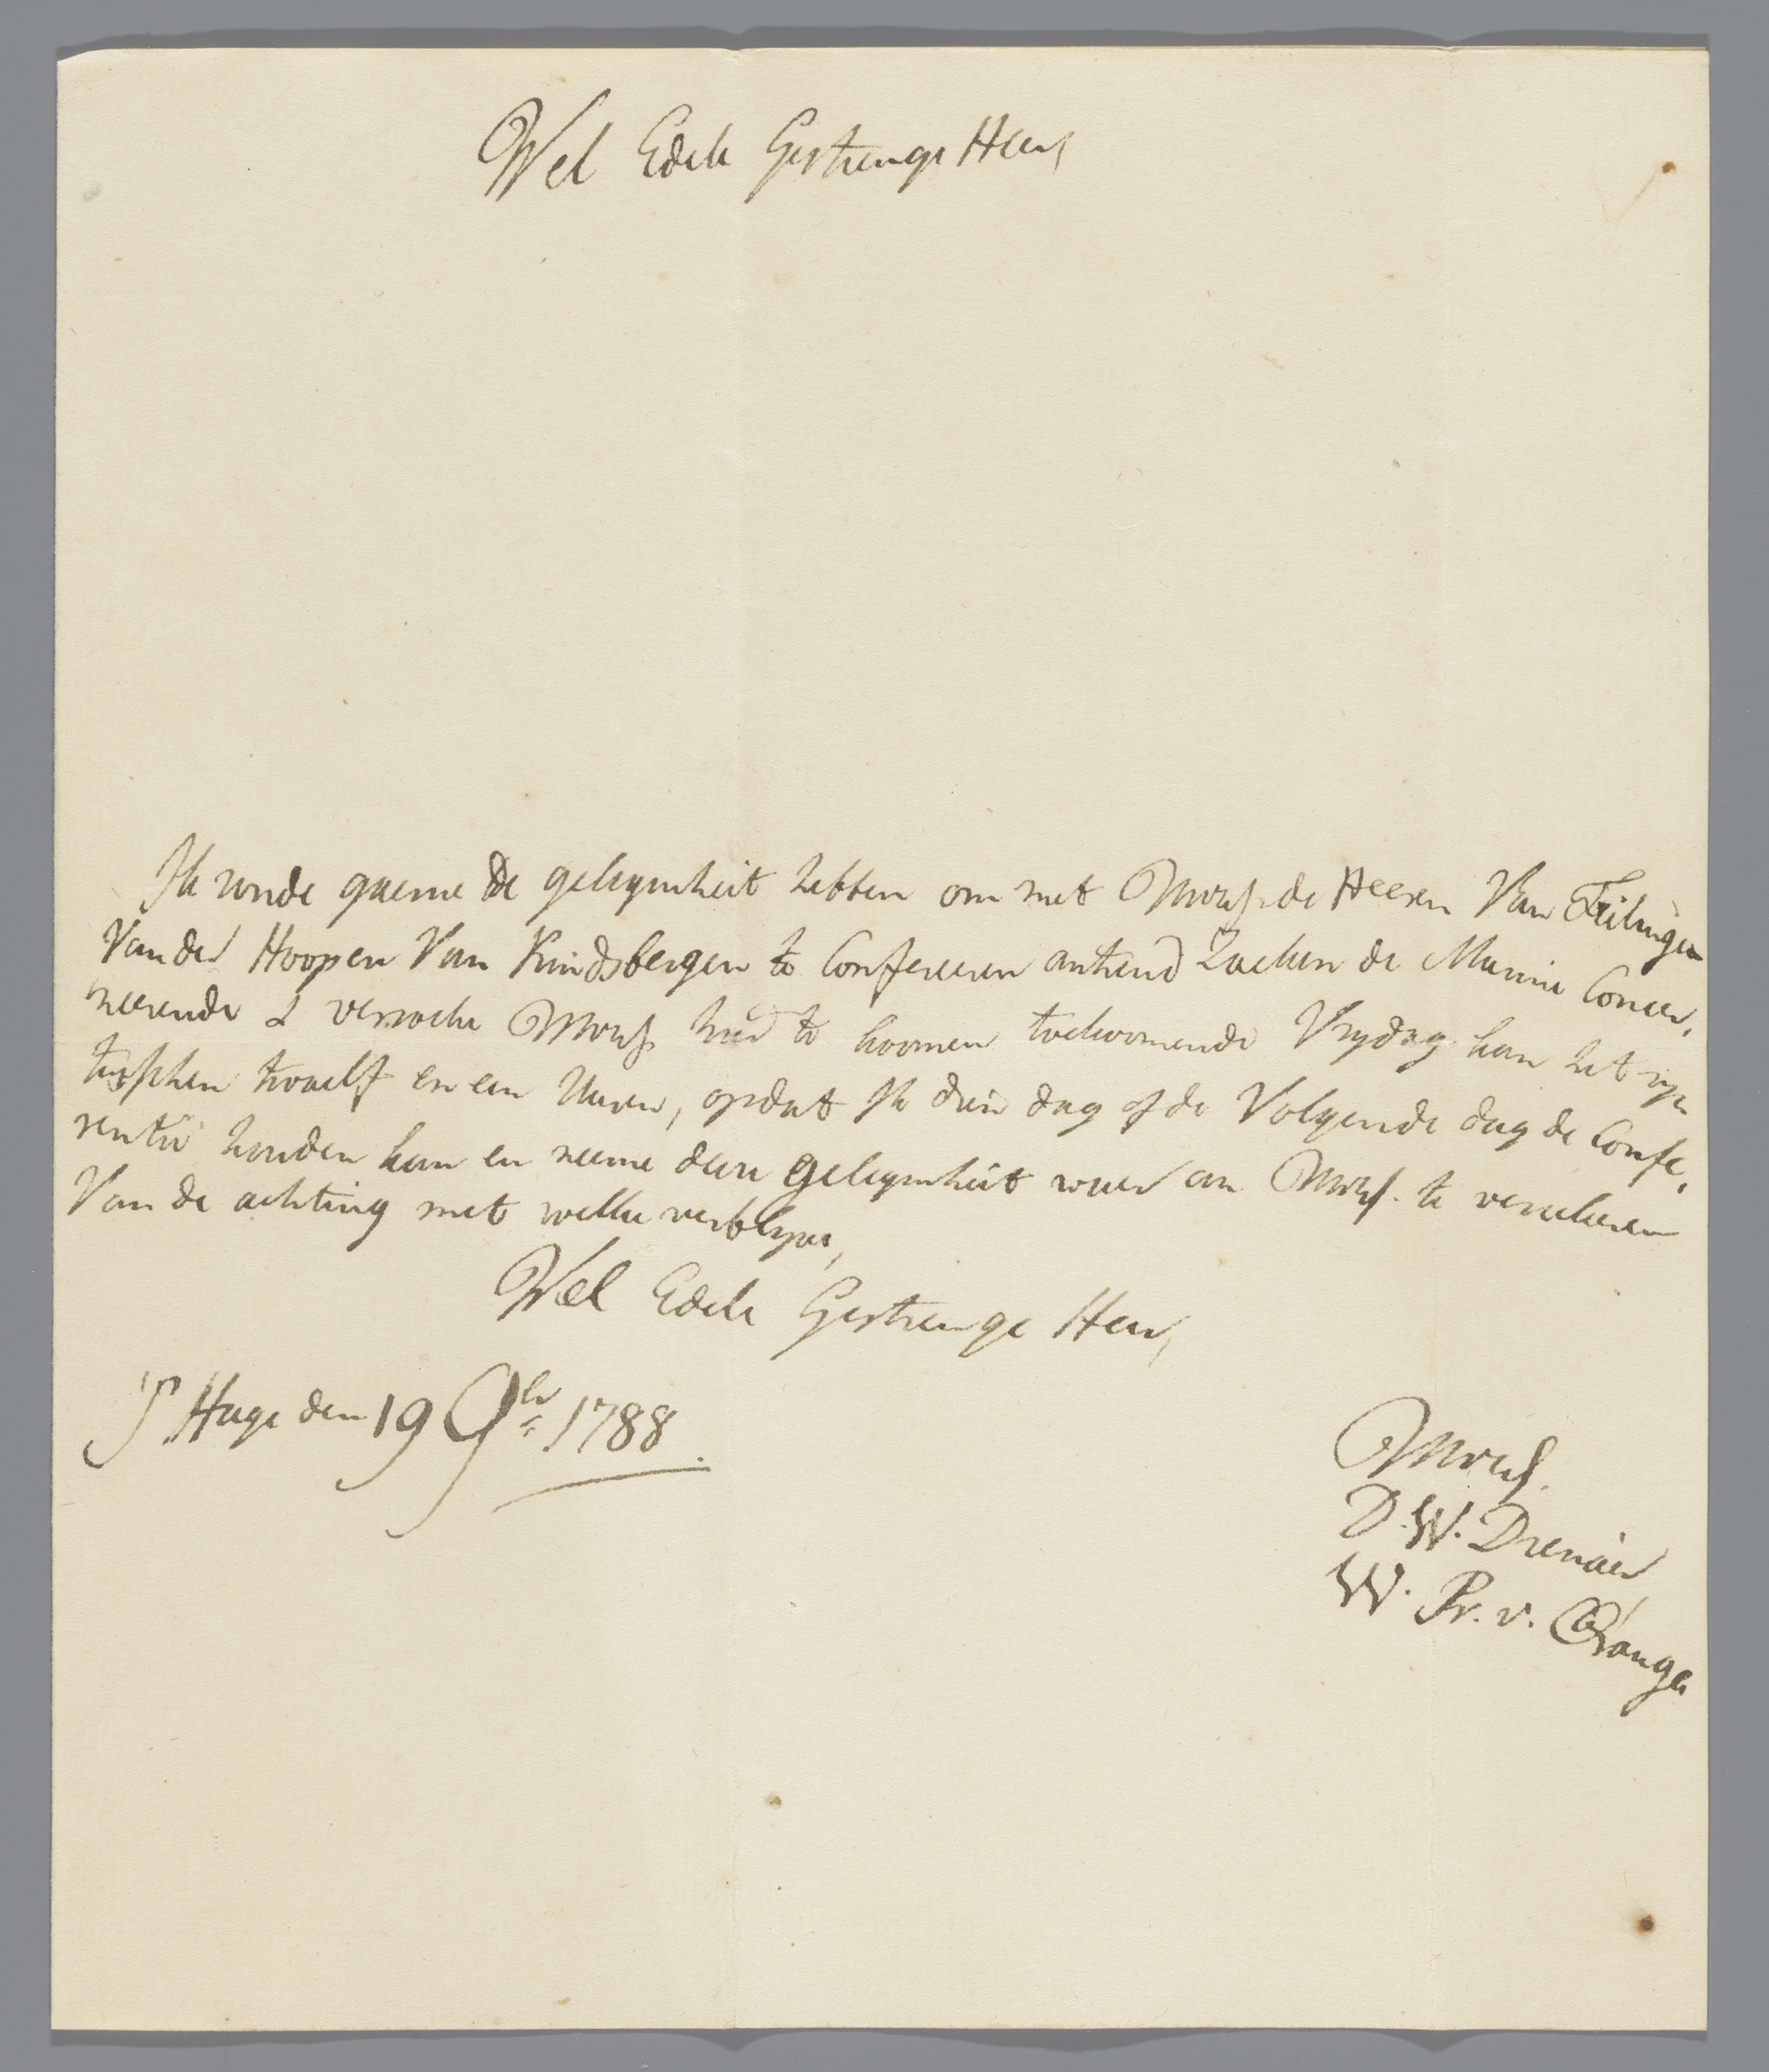 Wel Edele Gestrenge Heer,
Ik wnde gaerne de gelegenheit hebben om met de Heeren Van Teilingen
Vander Hoopen Van Kindsbergen te Confereeren zaeken de Marine Concer,
neerende & versoeke hier te koomen toekoomende Vrydag kan het zyn
tusschen twaelf en een Uuren, opdat Ik dien dag of de Volgende dag de Confe,
rentie houden kan en neeme deese gelegenheit waer om te verseekeren
Van de achting met welke verblyve,
Wel Edele Gestrenge Heer,
S' Hage den 19 9br 1788.
D. W. Dienaer,
W. Pr. v. Orange